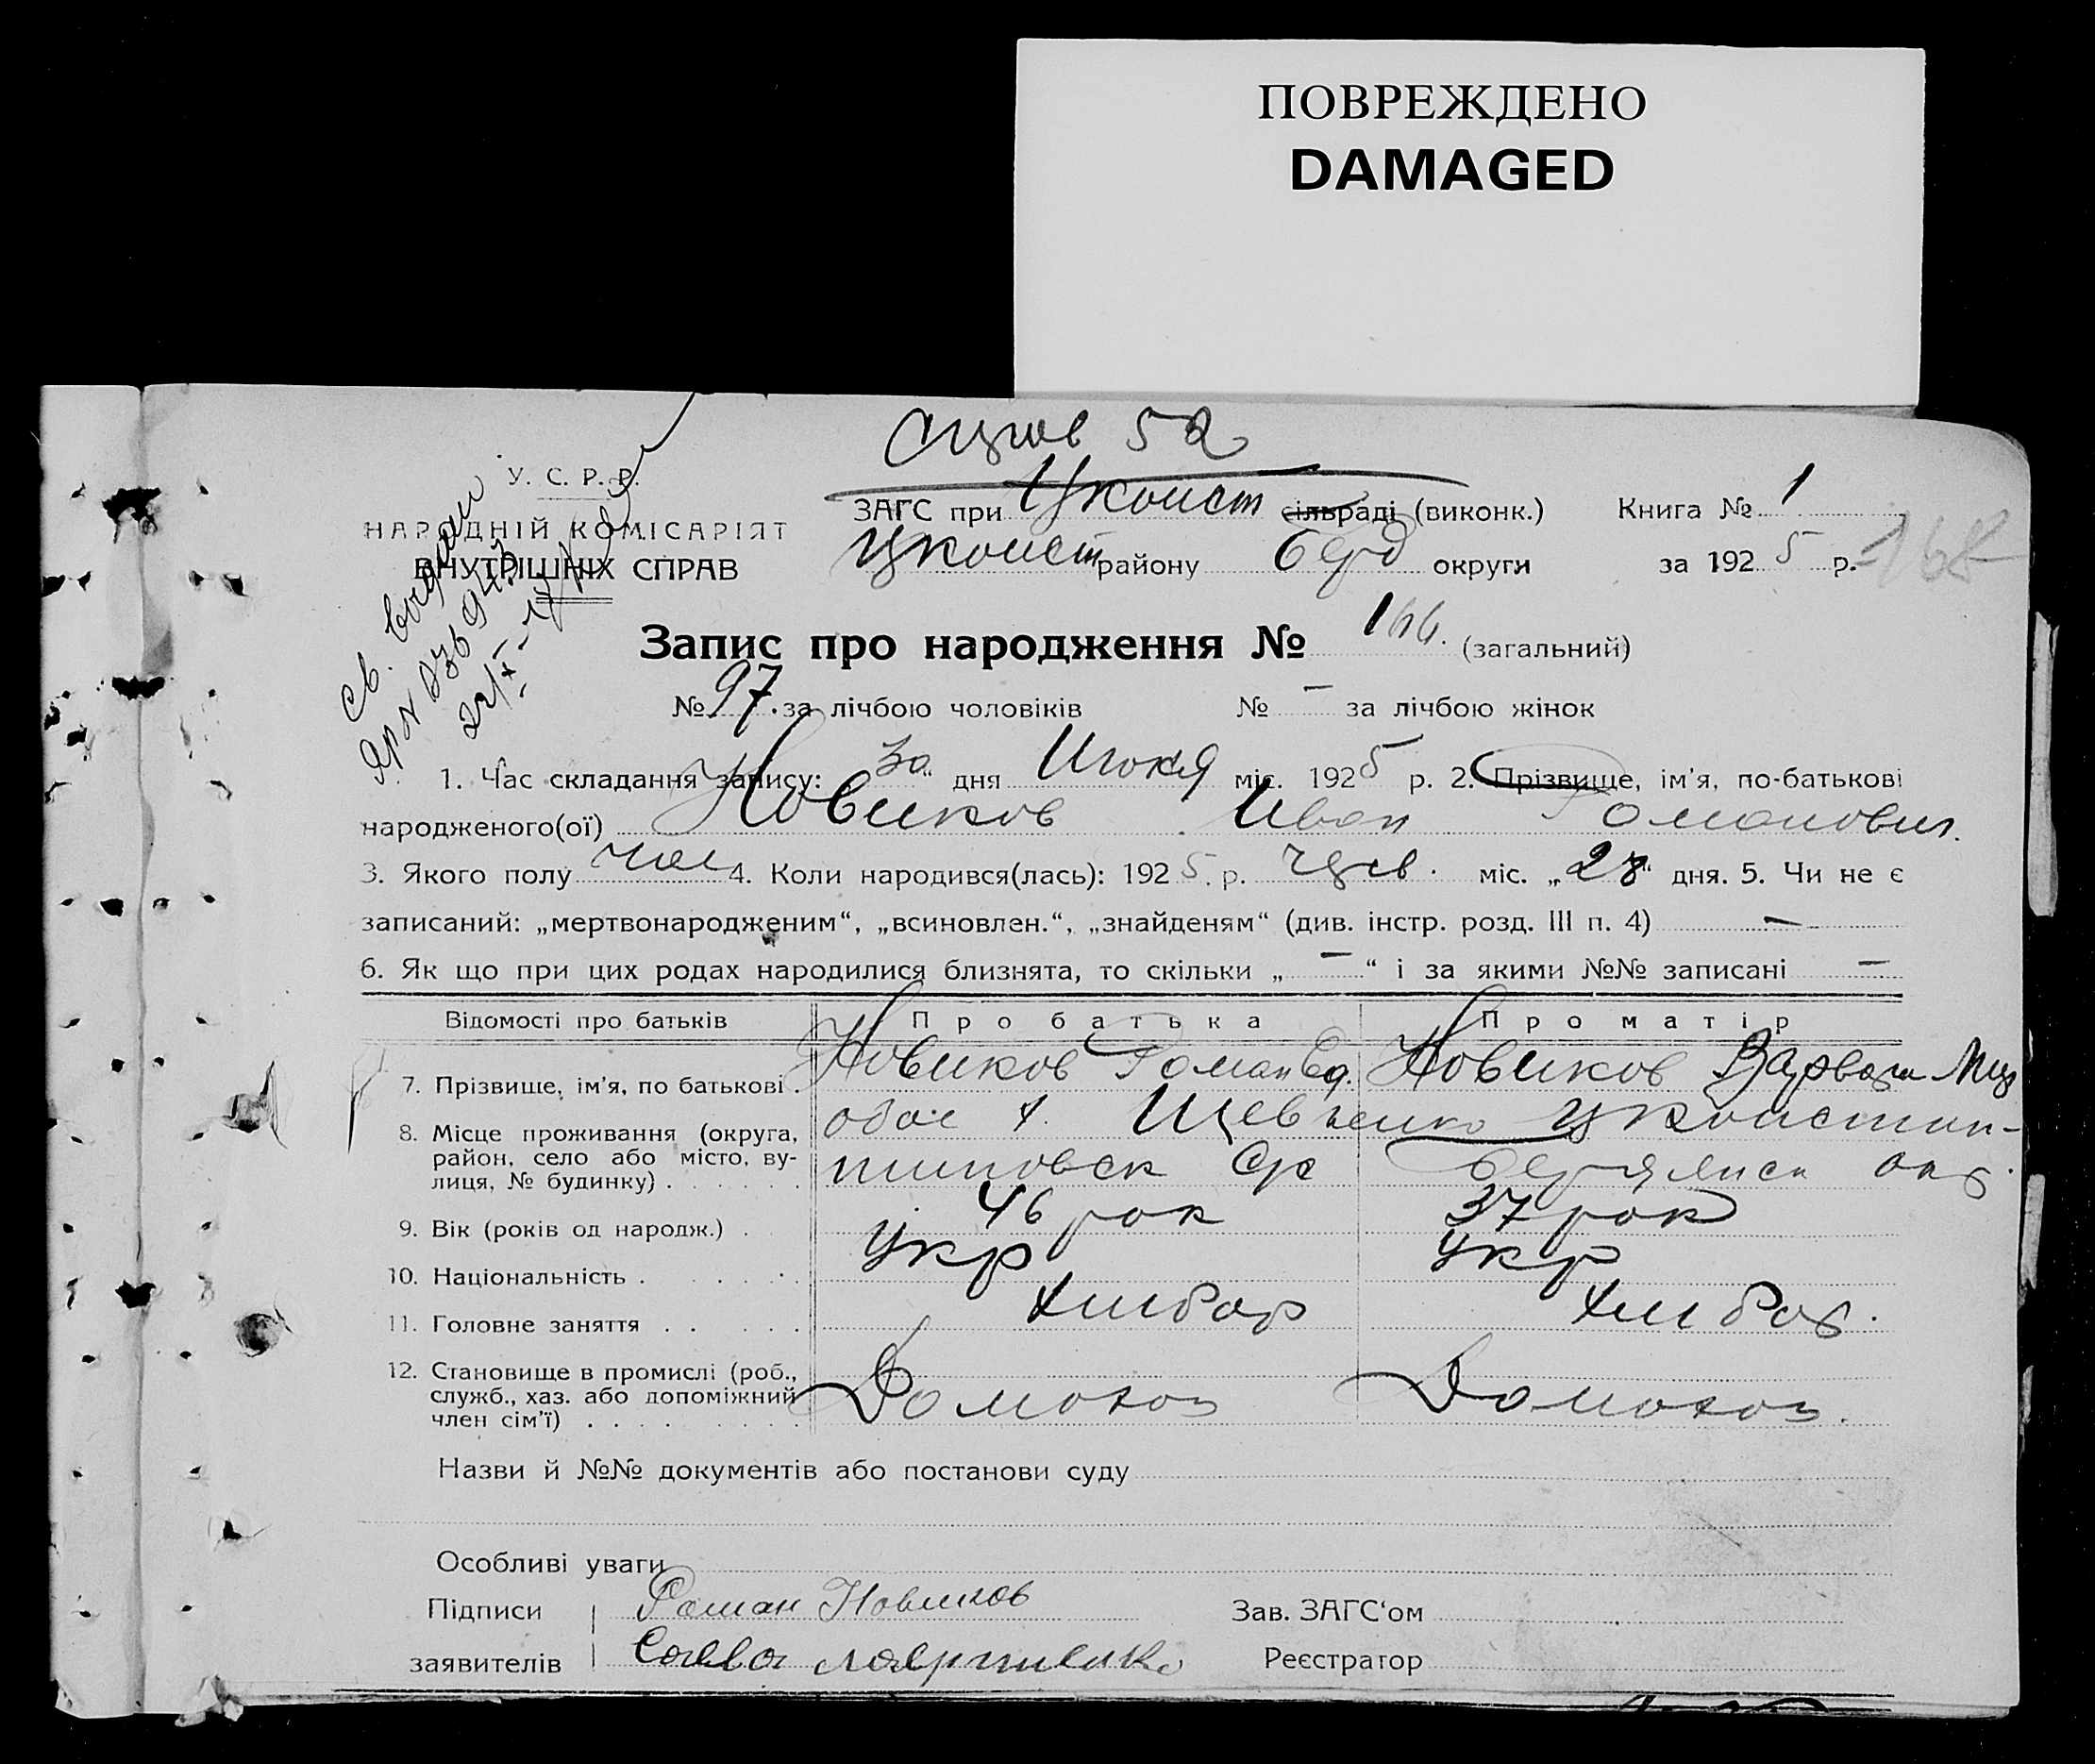 ПОВРЕЖДЕНО
DAMAGED
52
У. С. Р. Р.
НАРОДНІЙ КОМІСАРІЯТ
ВНУТРІШНІХ СПРАВ
ЗАГС при Цконст сільраді (виконк.) Книга № 1
Цконст району Берд округи за 1925 р. 168
Запис про народження № 166. (загальний)
№ 97. за лічбою чоловіків № — за лічбою жінок
1. Час складання запису: 30 " дня Июня міс. 1925 р. 2. Прізвище, ім'я, по-батькові
народженого(ої) Новиков Иван Романович.
3. Якого полу чол 4. Коли народився(лась): 1925 р. міс. „28“ дня. 5. Чи не є
записаний: „мертвонародженим“, „всиновлен.“, „знайденям“ (див. інстр. розд. III п. 4) —
6. Як що при цих родах народилися близнята, то скільки „ — “ і за якими №№ записані —
Відомості про батьків Про батька Про матір
7. Прізвище, ім'я, по батькові . Новиков Роман Новиков Варвара
8. Місце проживання (округа, район, село або місто, вулиця, № будинку) . . . . . . Шевченко
9. Вік (років од народж.) . 46 рок 37 рок
10. Національність . . . . . Укр Укр
11. Головне заняття . . . . . Хлибор Хлибор.
12. Становище в промислі (роб., служб., хаз. або допоміжний член сім'ї) . . . . . . . Домохоз Домохоз.
Назви й №№ документів або постанови суду
Особливі уваги
Підписи Роман Новиков Зав. ЗАГС'ом
заявителів Савва Реєстратор